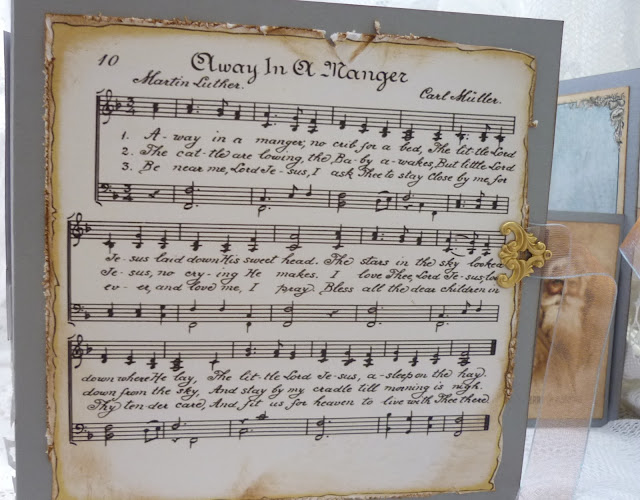 10
Away In A Manger
Martin Luther.
Carl Müller.
1. A-way in a manger, no crib for a bed, The lit-tle Lord
2. The cat-tle are lowing, the Ba-by a-wakes, But little Lord
3. Be near me, Lord Je-sus, I ask Thee to stay close by me, for
Je-sus laid down His sweet head. The stars in the sky looked
Je-sus, no cry-ing He makes. I love Thee, Lord Je-sus,
ev-er, and love me, I pray. Bless all the dear children in
down where He lay, The lit-tle Lord Je-sus, a-sleep on the hay.
down from the sky, And stay by my cradle till morning is nigh.
Thy ten-der care, And fit us for heaven to live with Thee there